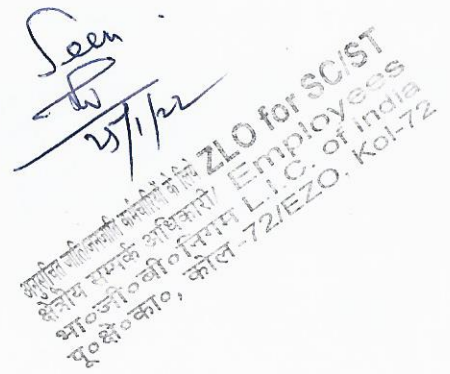 Seen
25/1/22
अनुसूचित जाति/जनजाति कर्मचारियों के लिये ZLO for SC/ST
क्षेत्रीय सम्पर्क अधिकारी/ Employees
भा०जी०बी०निगम L.I.C. of India
पू०क्षे०का०, कोल-72/EZO, Kol-72